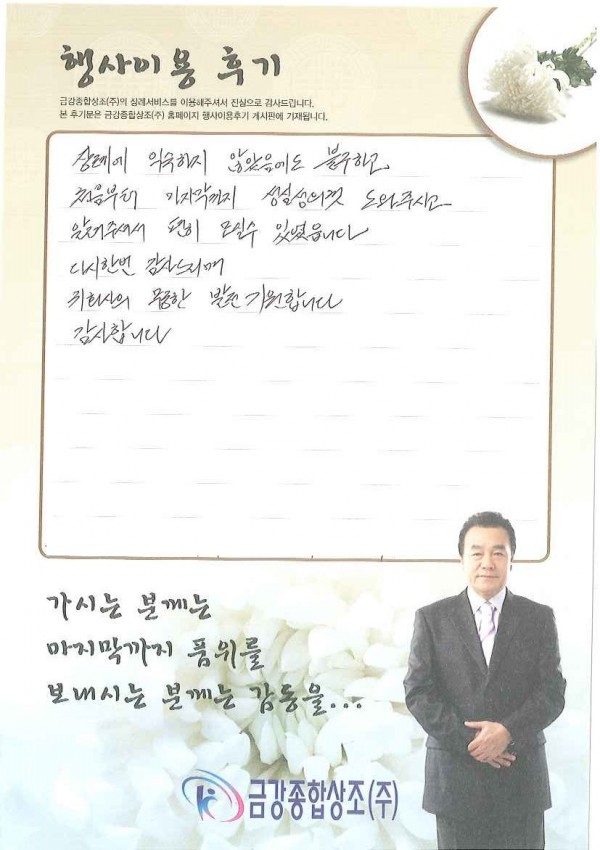 행사이용 후기
금강종합상조(주)의 장례서비스를 이용해주셔서 진심으로 감사드립니다.
본 후기분은 금강종합상조(주) 홈페이지 행사이용후기 게시판에 기재됩니다.
장례에 익숙하지 않았음에도 불구하고
처음부터 마지막까지 성실성의껏 도와주시고
알려주셔서 편히 모실수 있었습니다
다시한번 감사드리며
귀회사의 무궁한 발전 기원합니다
감사합니다
가시는 분께는
마지막까지 품위를
보내시는 분께는 감동을...
금강종합상조(주)